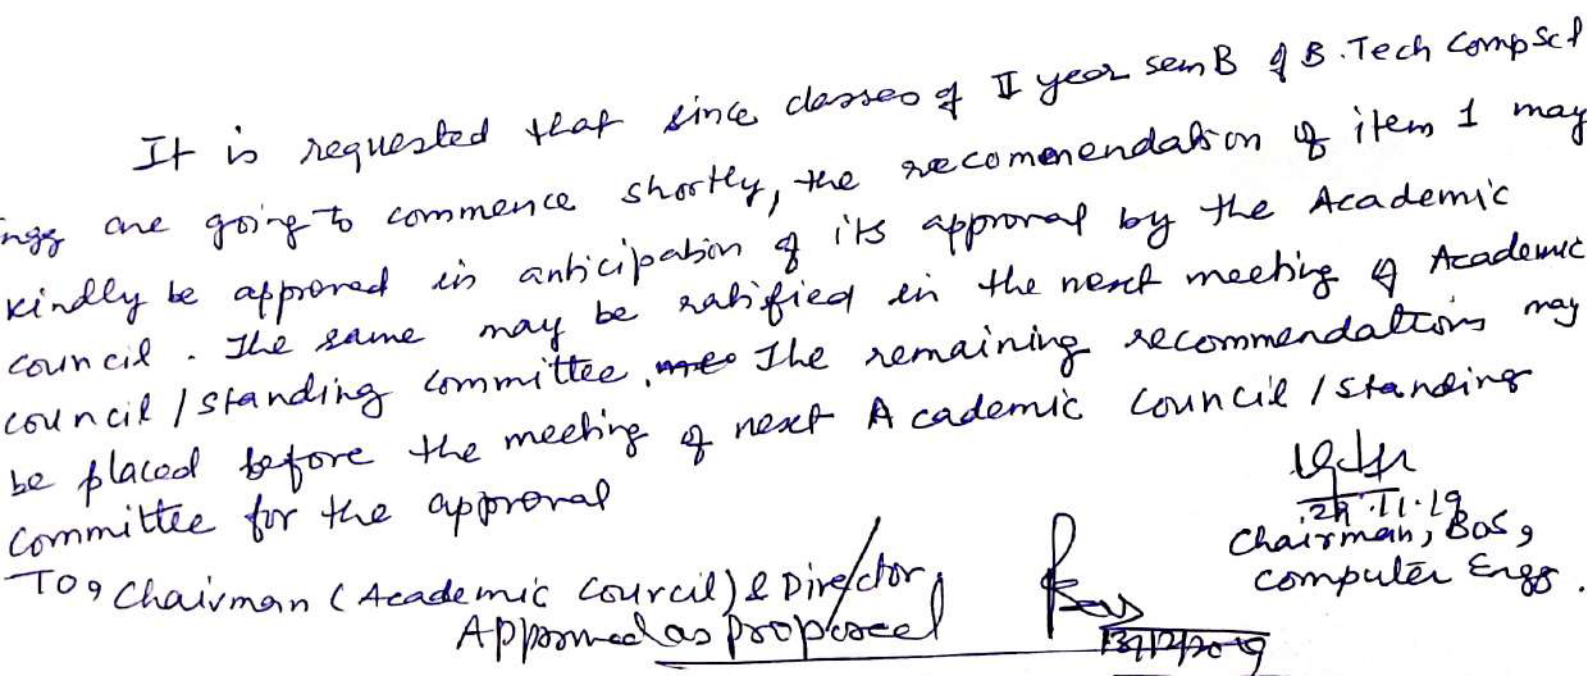 It is requested that since classes of II year sem B of B.Tech Comp Sci
Engg are going to commence shortly, the recomemendation of item 1 may
kindly be approved in anticipation of its approval by the Academic
council. The same may be ratified in the next meeting of Academic
council / standing committee. The remaining recommendations may
be placed before the meeting of next Academic council / standing
committee for the approval
29.11.19
Chairman, BoS,
computer Engg.
To, Chairman (Academic council) & Director
Approved as proposed